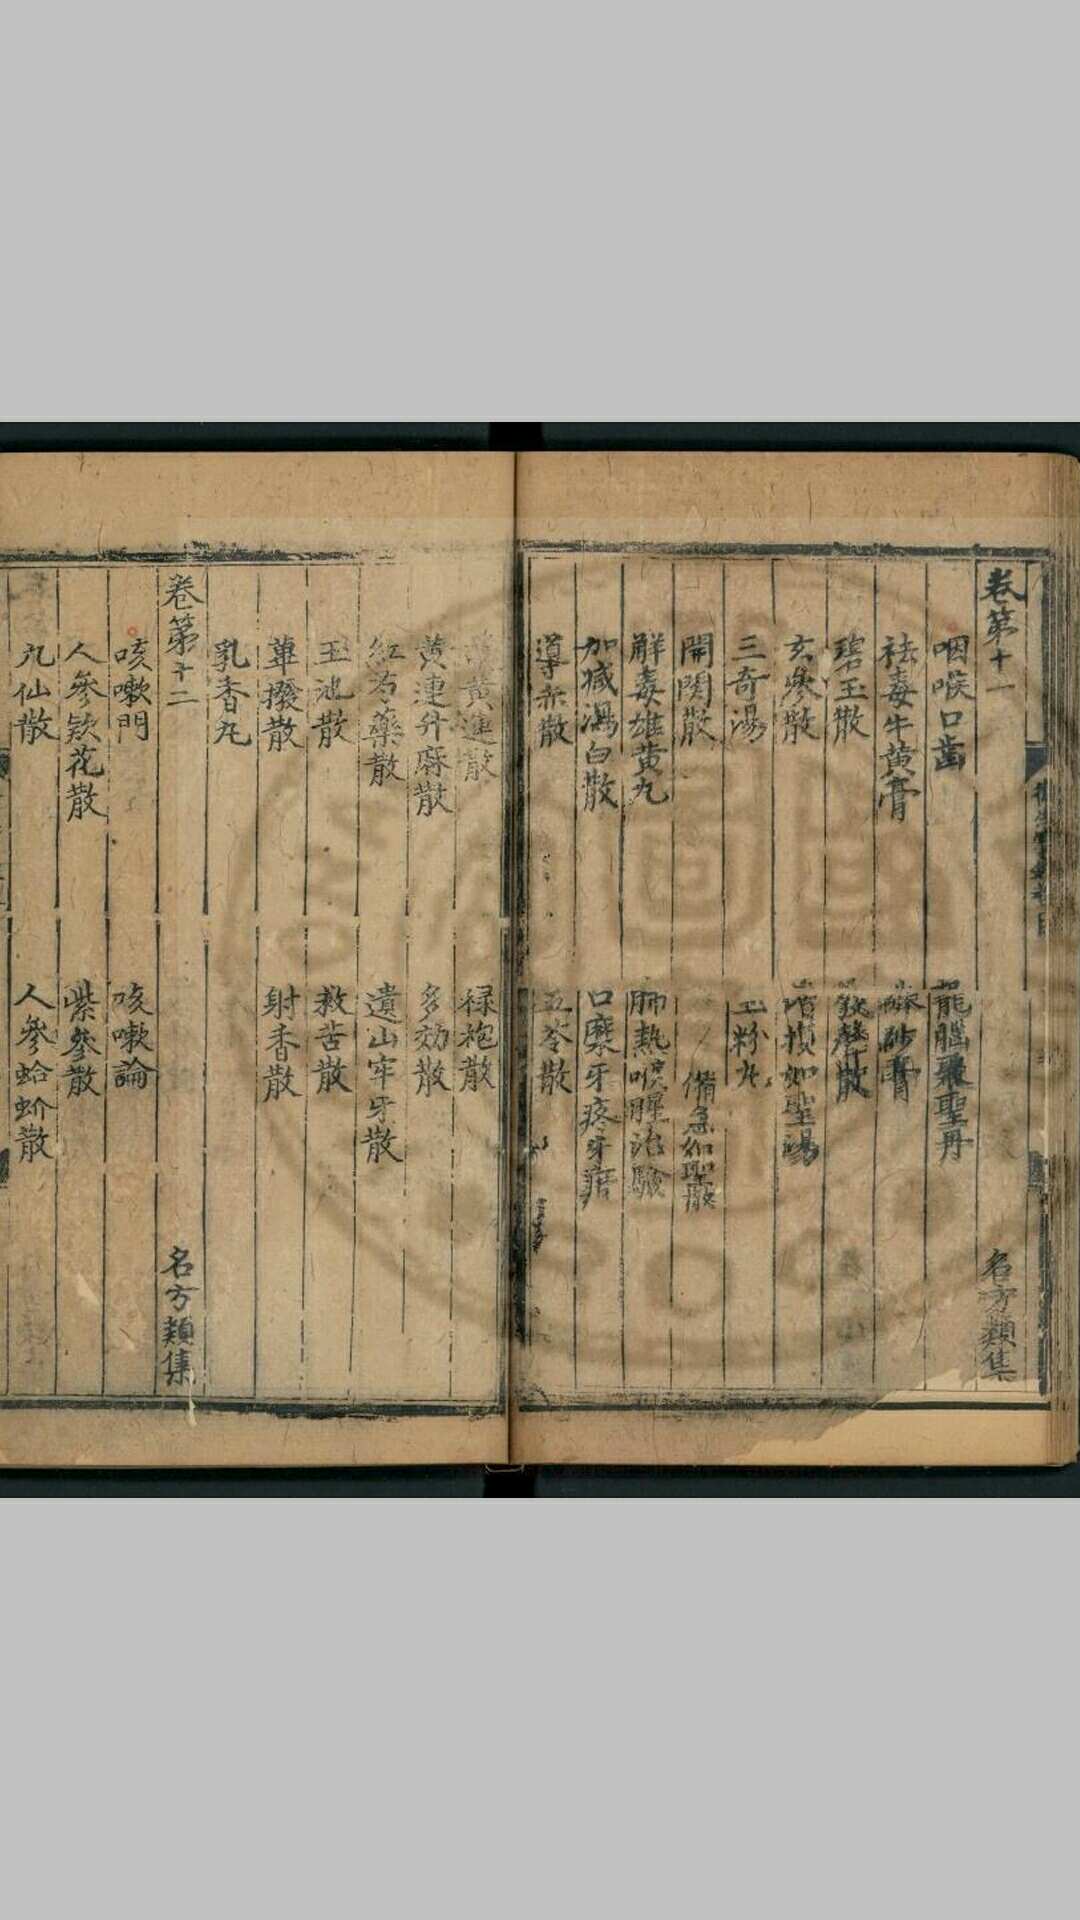 卷第十一
名方類集
咽喉口齒
龍腦聚聖丹
祛毒牛黄膏
砂膏
碧玉散
散
玄參散
增損如聖湯
三奇湯
玉粉丸
開關散
備急如聖散
解毒雄黄丸
肺熱喉腥治驗
加減瀉白散
口糜牙疼牙疳
導赤散
五苓散
黄連散
緑袍散
黄連升麻散
多効散
紅芍藥散
遺山牢牙散
玉池散
救苦散
蓽撥散
射香散
乳香丸
卷第十二
名方類集
咳嗽門
咳嗽論
人參欵花散
紫參散
九仙散
人參蛤蚧散